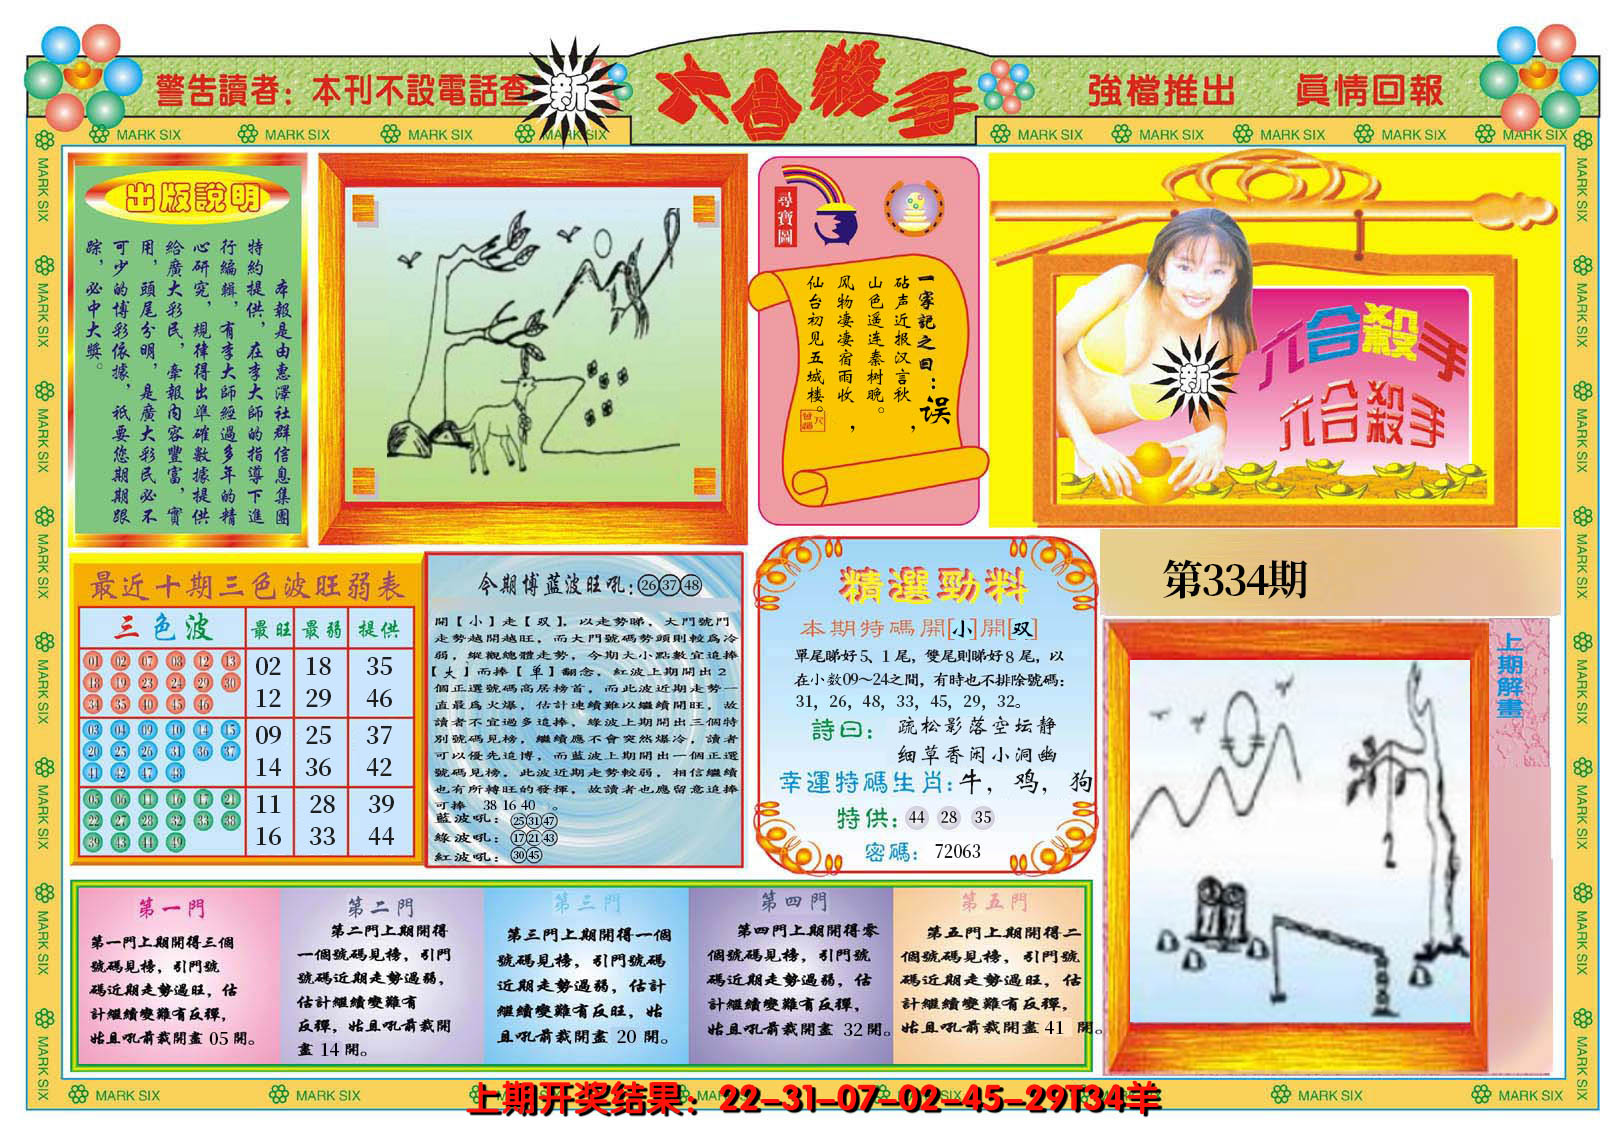 警告讀者：本刊不設電話查
新
六合殺手
強檔推出 真情回報
MARK SIX MARK SIX MARK SIX MARK SIX MARK SIX MARK SIX MARK SIX MARK SIX MARK SIX
出版說明
本報是由惠澤社群信息集團
特約提供，在李大師的指導下進
行編輯，有李大師經過多年的精
心研究，規律得出準確數據提供
給廣大彩民，牽報内容豐富，實
用，頭尾分明，是廣大彩民必不
可少的博彩依據，祇要您期期跟
踪，必中大獎。
尋寶圖
一家記之曰：误
砧声近报汉言秋，
山色遥连秦树晚。
风物凄凄宿雨收，
仙台初见五城楼。
新
六合殺手
六合殺手
第334期
最近十期三色波旺弱表
三色波 最旺 最弱 提供
01 02 07 08 12 13
18 19 23 24 29 30
34 35 40 45 46
02 18 35
12 29 46
03 04 09 10 14 15
20 25 26 31 36 37
41 42 47 48
09 25 37
14 36 42
05 06 11 16 17 21
22 27 28 32 33 38
39 43 44 49
11 28 39
16 33 44
今期博藍波旺吼：26 37 48
開【小】走【双】，以走勢睇，大門號門
走勢越開越旺，而大門號碼勢頭則較爲冷
弱，縱觀總體走勢，今期大小點數宜追捧
【大】而捧【单】翻念，紅波上期開出2
個正選號碼高居榜首，而此波近期走勢一
直最爲火爆，估計連續難以繼續開旺，故
讀者不宜過多追捧，綠波上期開出三個特
別號碼見榜，繼續應不會突然爆冷，讀者
可以優先追博，而藍波上期開出一個正選
號碼見榜，此波近期走勢較弱，相信繼續
也有所轉旺的發揮，故讀者也應留意追捧
可捧 38 16 40 。
藍波吼：25 31 47
綠波吼：17 21 43
紅波吼：30 45
精選勁料
本期特碼開[小]開[双]
單尾睇好5、1尾，雙尾則睇好8尾，以
在小数09～24之間，有時也不排除號碼：
31，26，48，33，45，29，32。
詩曰： 疏松影落空坛静
细草香闲小洞幽
幸運特碼生肖：牛，鸡，狗
特供：44 28 35
密碼：72063
上期解畫
第一門
第一門上期開得三個
號碼見榜，引門號
碼近期走勢過旺，估
計繼續變難有反彈，
姑且吼前裁開畫 05 開。
第二門
第二門上期開得
一個號碼見榜，引門
號碼近期走勢過弱，
估計繼續變難有
反彈，姑且吼前裁開
畫 14 開。
第三門
第三門上期開得一個
號碼見榜，引門號碼
近期走勢過弱，估計
繼續變難有反旺，姑
且吼前裁開畫 20 開。
第四門
第四門上期開得零
個號碼見榜，引門號
碼近期走勢過弱，估
計繼續變難有反彈，
姑且吼前裁開畫 32 開。
第五門
第五門上期開得二
個號碼見榜，引門號
碼近期走勢過旺，估
計繼續變難有反彈，
姑且吼前裁開畫 41 開。
MARK SIX MARK SIX MARK SIX MARK SIX MARK SIX
上期开奖结果：22-31-07-02-45-29T34羊